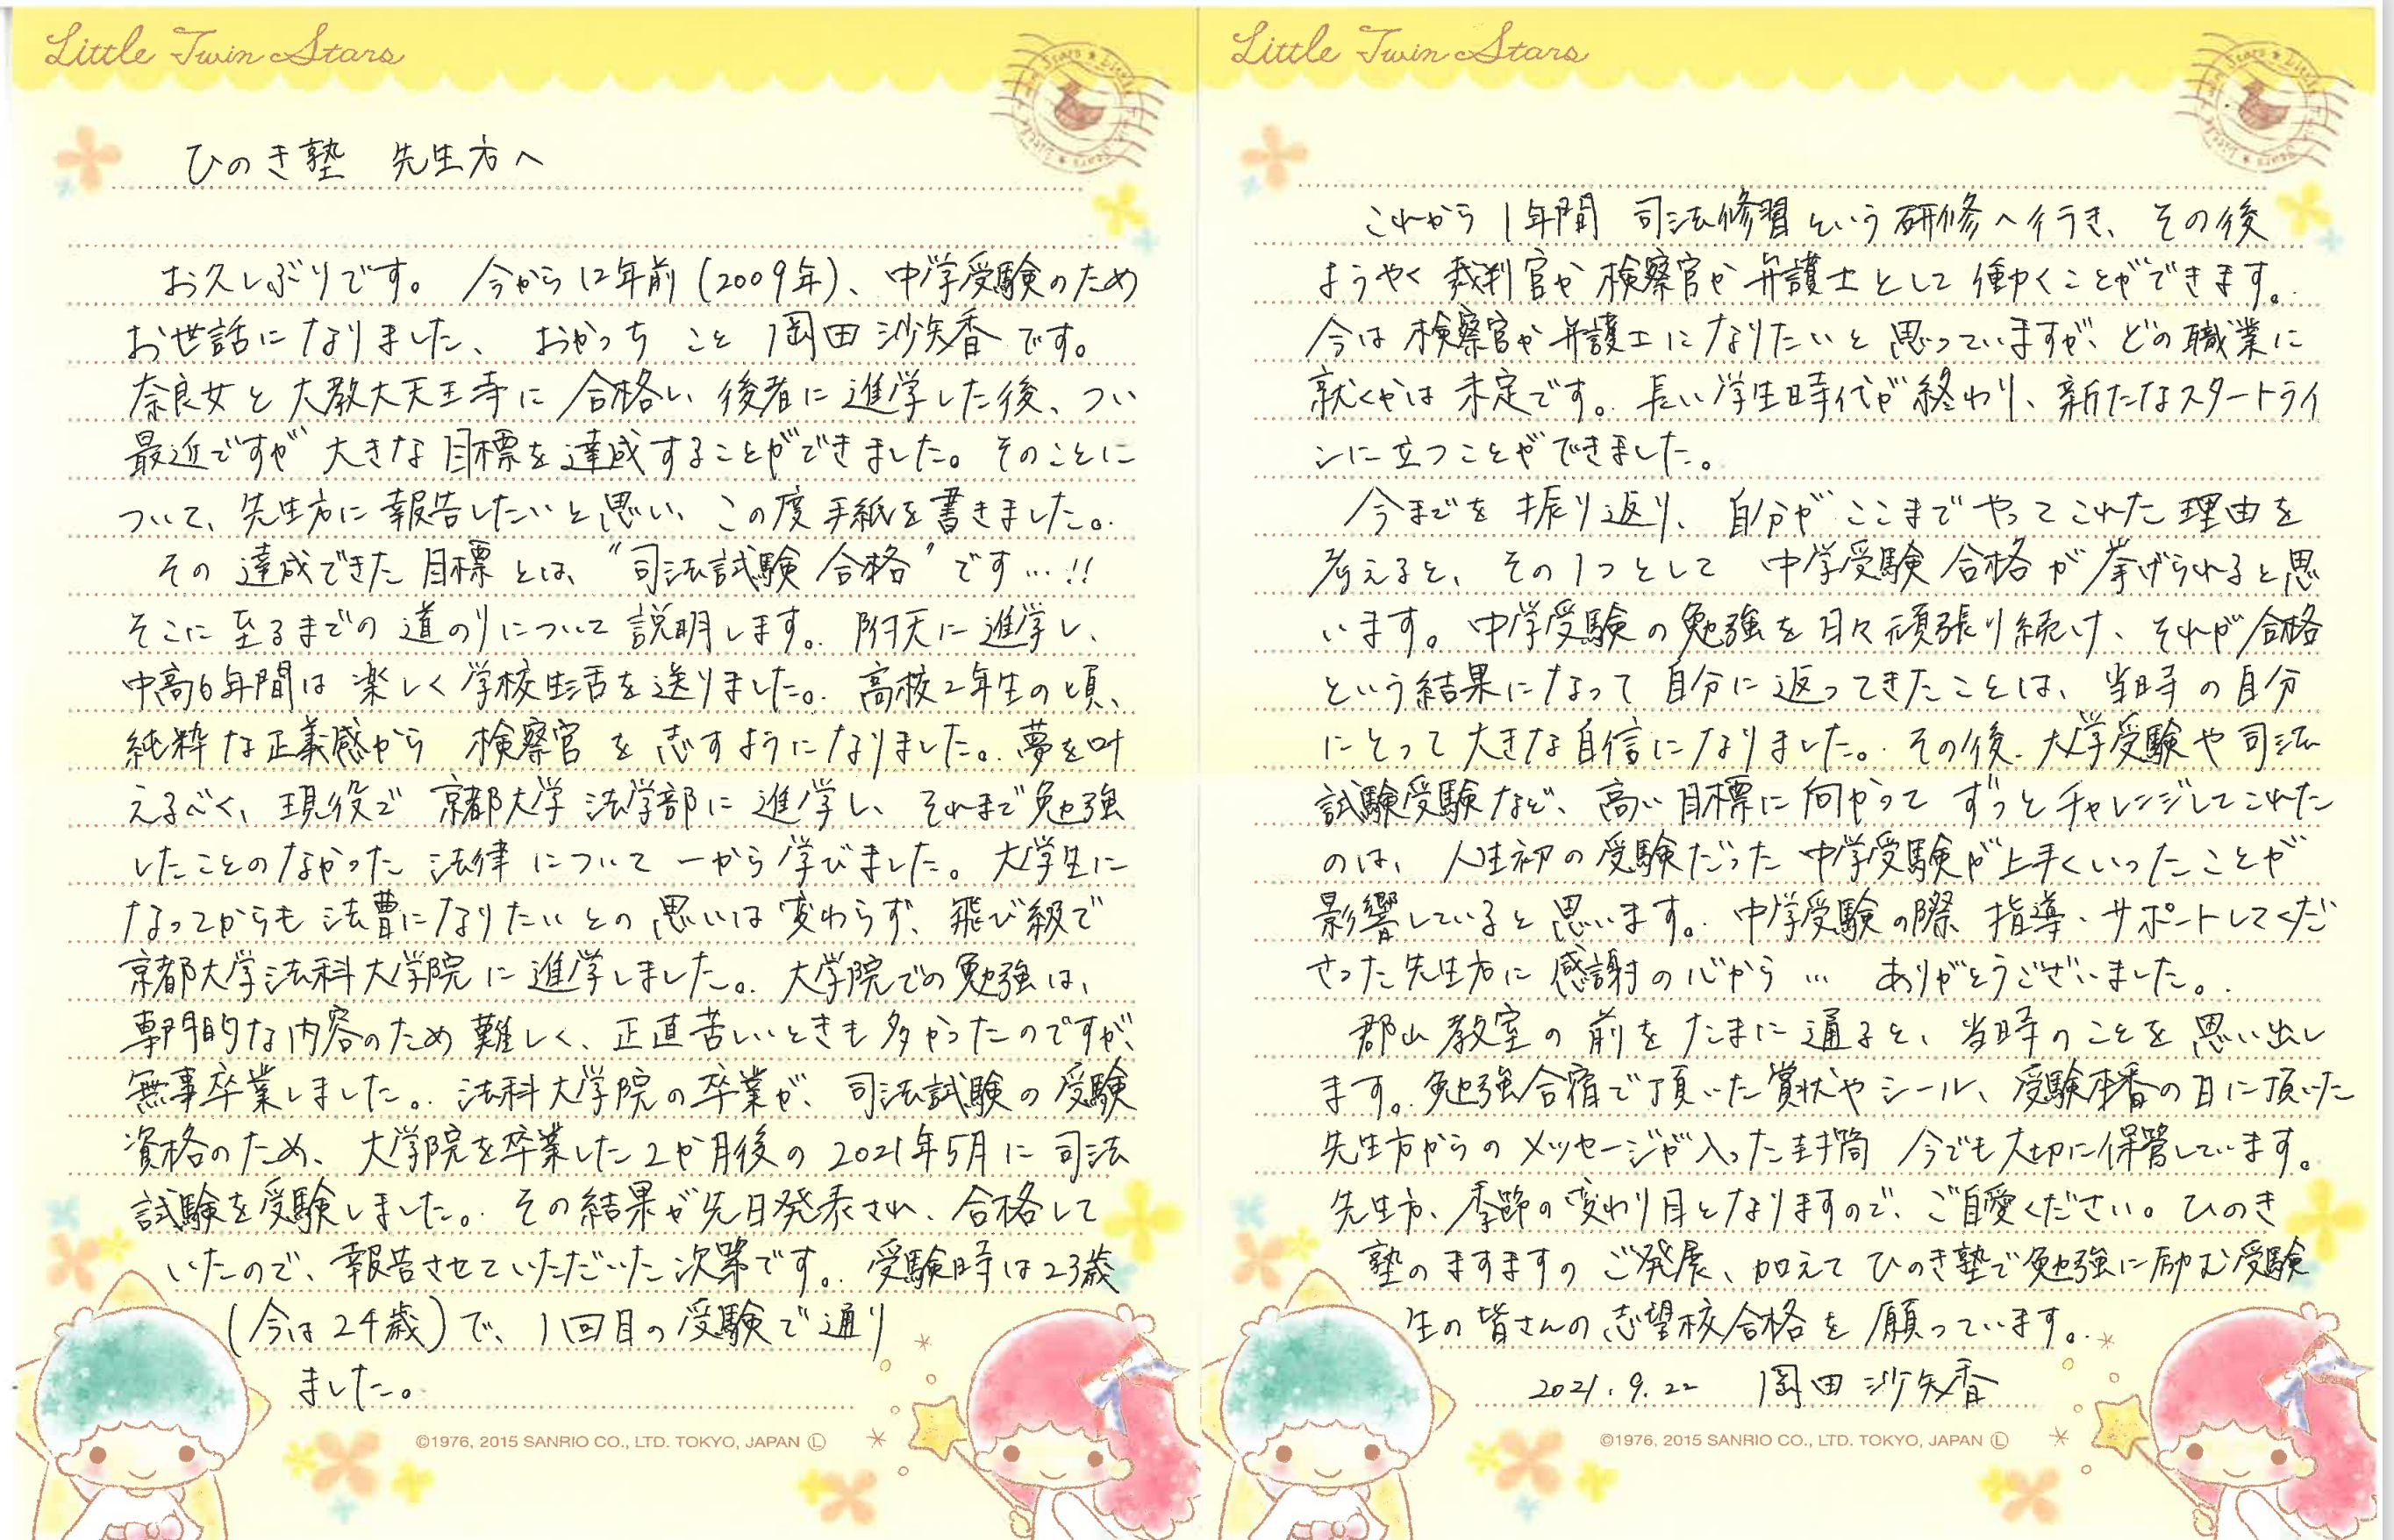 Little Twin Stars
ひのき塾 先生方へ
お久しぶりです。 今から12年前(2009年)、中学受験のため
お世話になりました、 おかっち こと 岡田 沙矢香 です。
奈良女と大教大天王寺に合格し、後者に進学した後、つい
最近ですが 大きな目標を達成することができました。そのことに
ついて、先生方に報告したいと思い、この度手紙を書きました。
その 達成できた 目標 とは、“司法試験 合格”です…!!
そこに至るまでの道のりについて説明します。附天に進学し、
中高6年間は 楽しく学校生活を送りました。高校2年生の頃、
純粋な正義感から 検察官 を志すようになりました。夢を叶
えるべく、現役で 京都大学 法学部に進学し、それまで勉強
したことのなかった 法律 について 一から学びました。大学生に
なってからも法曹になりたいとの思いは変わらず、飛び級で
京都大学法科大学院に進学しました。大学院での勉強は、
専門的な内容のため難しく、正直苦しいときも多かったのですが、
無事卒業しました。法科大学院の卒業が、司法試験の受験
資格のため、大学院を卒業した2か月後の2021年5月に司法
試験を受験しました。その結果が先日発表され、合格して
いたので、報告させていただいた次第です。受験時は23歳
(今は24歳)で、1回目の受験で通り
ました。
©1976, 2015 SANRIO CO., LTD. TOKYO, JAPAN Ⓛ
Little Twin Stars
これから1年間 司法修習という研修へ行き、その後
ようやく裁判官か検察官か弁護士として働くことができます。
今は検察官か弁護士になりたいと思っていますが、どの職業に
就くかは未定です。長い学生時代が終わり、新たなスタートライ
ンに立つことができました。
今までを振り返り、自分がここまでやってこれた理由を
考えると、その1つとして 中学受験合格が挙げられると思
います。中学受験の勉強を日々頑張り続け、それが合格
という結果になって自分に返ってきたことは、当時の自分
にとって大きな自信になりました。その後、大学受験や司法
試験受験など、高い目標に向かってずっとチャレンジしてこれた
のは、人生初の受験だった中学受験が上手くいったことが
影響していると思います。中学受験の際、指導・サポートしてくだ
さった先生方に感謝の心から… ありがとうございました。
郡山教室の前をたまに通ると、当時のことを思い出し
ます。勉強合宿で頂いた賞状やシール、受験本番の日に頂いた
先生方からのメッセージが入った封筒 今でも大切に保管しています。
先生方、季節の変わり目となりますので、ご自愛ください。ひのき
塾のますますのご発展、加えてひのき塾で勉強に励む受験
生の皆さんの志望校合格を願っています。
2021.9.22 岡田 沙矢香
©1976, 2015 SANRIO CO., LTD. TOKYO, JAPAN Ⓛ